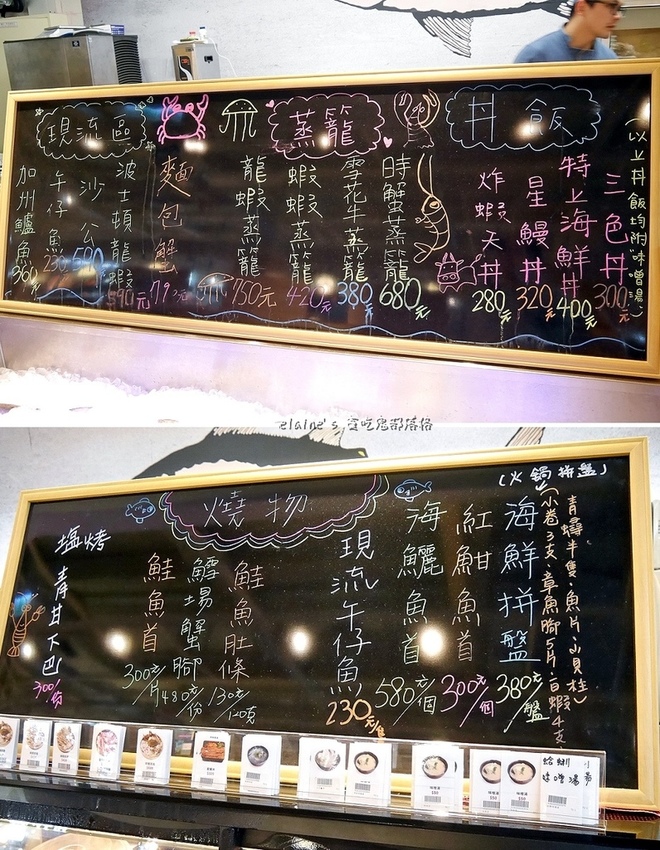 丼飯
(以上丼飯均附味噌湯)
三色丼 300元
特上海鮮丼 400元
星鰻丼 320元
炸蝦天丼 280元
蒸籠
時蟹蒸籠 680元
雪花牛蒸籠 380元
蝦蝦蒸籠 420元
龍蝦蒸籠 750元
現流區
麵包蟹
波士頓龍蝦 590元
沙公
午仔魚 230
加州鱸魚 360
elaine's 貪吃鬼部落格
燒物
(火鍋拼盤)
海鮮拼盤 380元/盤
紅魽魚首 300元/個
海鱺魚首 580元/個
現流午仔魚 230元/隻
鮭魚肚條 130元/120克
鱈場蟹腳 480元/份
鮭魚首 300元/片
塩烤
青甘下巴 300/份
蛤蜊
味噌湯